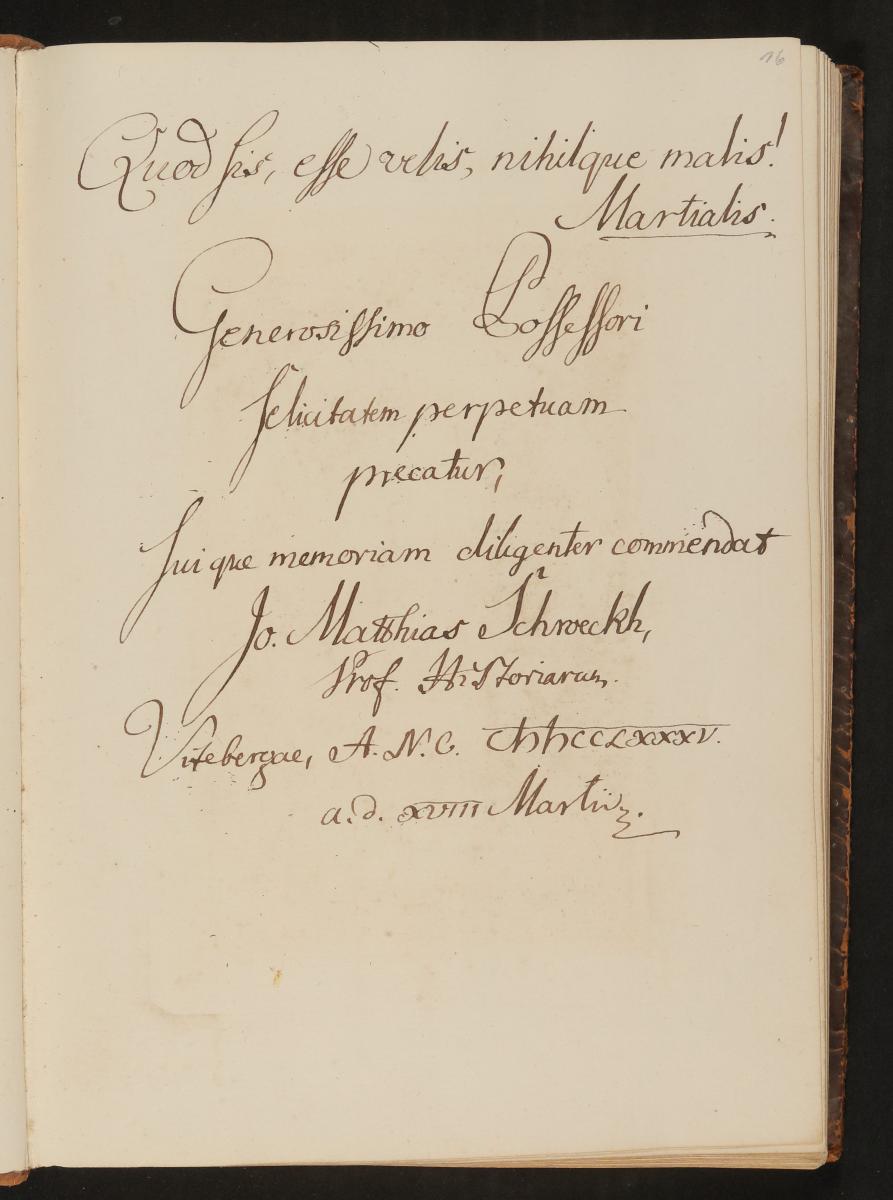 16
Quod sis, esse velis, nihilque malis!
Martialis.
Generosissimo Possessori
felicitatem perpetuam
precatur,
suique memoriam diligenter commendat
Jo. Matthias Schroeckh,
Prof. Historiarum.
Vitebergae, A. N. C. CIƆIƆCCLXXXV.
a. d. XVIII Martii.